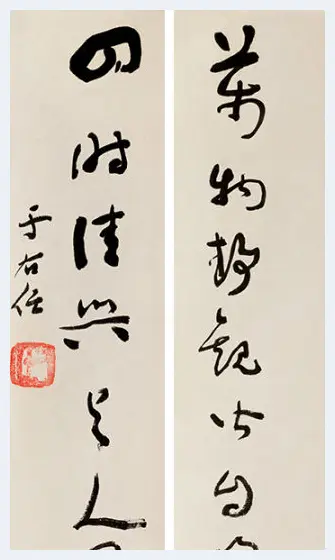 萬物静觀皆自
四時佳興與人
于右任